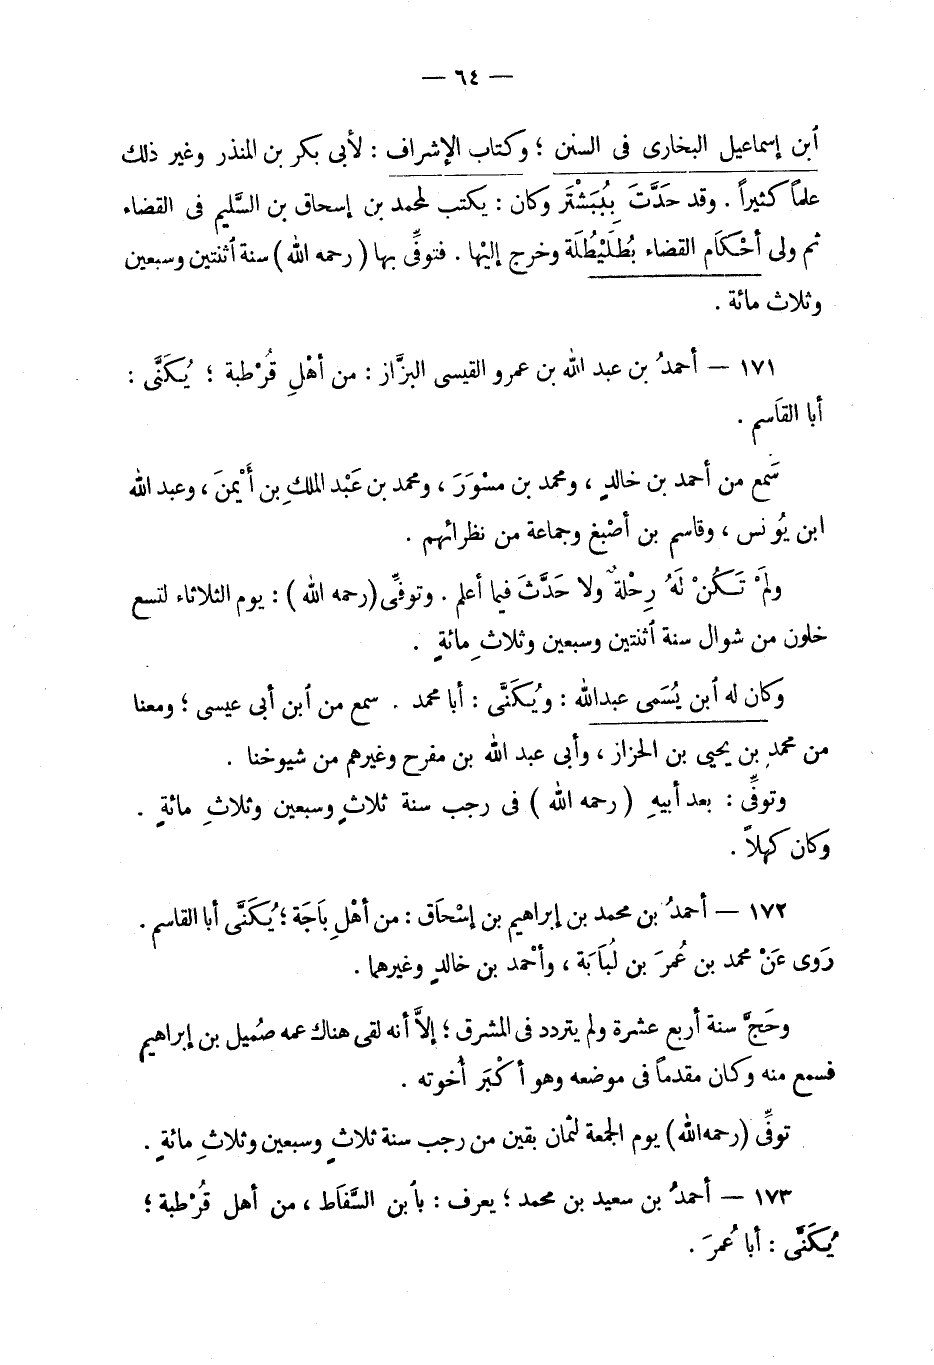 — ٦٤ —
أبن إسماعيل البخارى فى السنن ؛ وكتاب الإشراف : لأبى بكر بن المنذر وغير ذلك
علماً كثيراً . وقد حَدَّثَ بِبُبَشْتَر وكان : يكتب لمحمد بن إسحاق بن السَّليم فى القضاء
ثم ولى أحْكَام القضاء بُطلَيْطُلَة وخرج إليْها . فتوفِّى بها ( رحمه الله ) سنة أثنتين وسبعين
وثلاث مائة .
١٧١ — أحمدُ بن عبد الله بن عمرو القيسى البزَّاز : من أهْلِ قُرْطبة ؛ يُكَنَّى :
أبا القاَسم .
سَمع من أحمد بن خالدٍ ، ومحمد بن مسْوَرَ ، ومحمد بن عَبْد الملكِ بن أَيْمنَ ، وعبد الله
ابن يُونس ، وقاسم بن أصْبغ وجماعة من نظرائهم .
ولَمْ تَكُنْ لَهُ رِحْلة ٌ ولا حَدَّثَ فيما أعلم . وتوفِّى (رحمه الله ) : يوم الثلاثاء لتسع
خلون من شوال سنة أثنتين وسبعين وثلاثِ مائةٍ .
وكان له أبن يُسَمى عبدالله : ويُكَنَّى : أبا محمد . سمع من أبن أبى عيسى ؛ ومعنا
من محمدٍ بن يحيى بن الخزاز ، وأبى عبد الله بن مفرح وغيرهم من شيوخنا .
وتوفِّى : بعد أبيهِ ( رحمه الله ) فى رجب سنة ثلاثٍ وسبعين وثلاثِ مائةٍ .
وكان كهلاً .
١٧٢ — أحمدُ بن محمد بن إبراهيم بن إسْحَاق : من أهْلِ بَاجَة ؛ يُكَنَّى أبا القاسم .
رَوى عَنْ محمد بن عُمرَ بن لُبَابَة ، وأحْمد بن خالدٍ وغيرهما .
وحَجَّ سنة أربع عشرة ولم يتردد فى المشرق ؛ إلاَّ أنه لقى هناك عمه صُميل بن إبراهيم
فسمع منه وكان مقدماً فى موضعه وهو أكْبَر أُخوته .
توفِّى (رحمه الله) يوم الجمعة لثمان بقين من رجب سنة ثلاثٍ وسبعين وثلاثِ مائةٍ .
١٧٣ — أحمدُ بن سعيد بن محمد ؛ يعرف : بأبن السَّفاَط ، من أهل قُرْطبة ؛
يُكَنَّى : أبا عُمرَ .